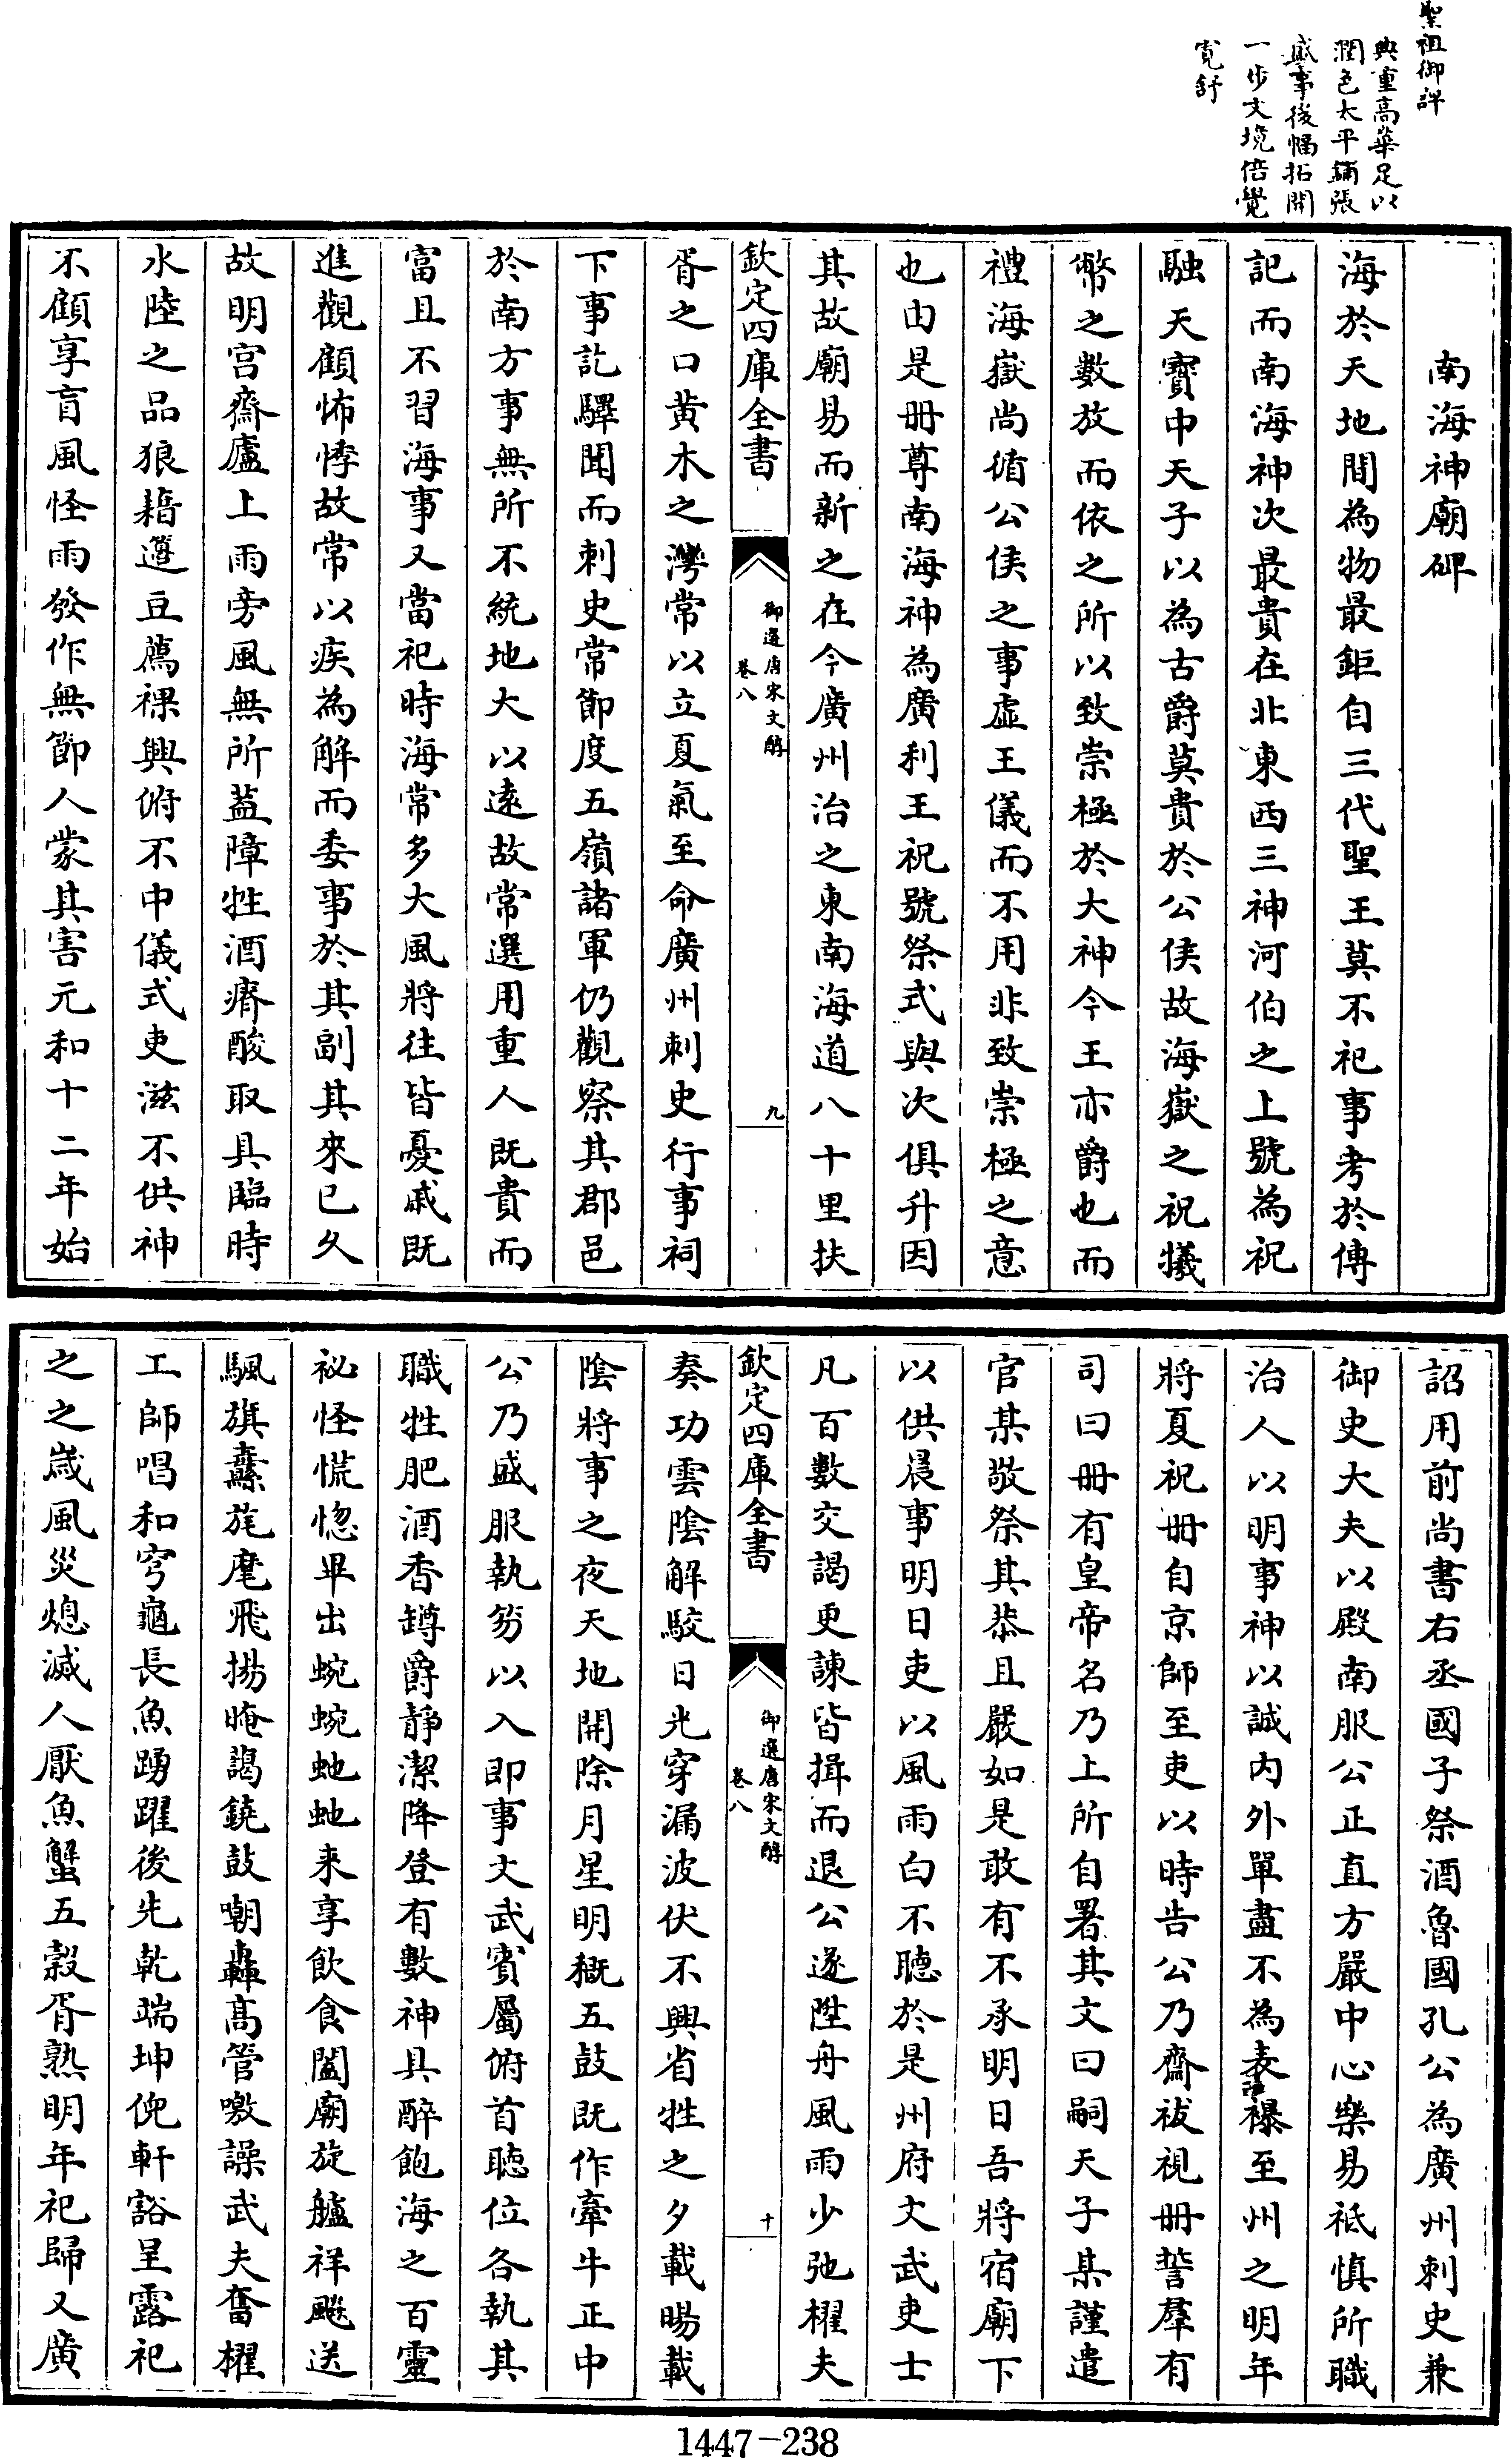 聖祖御評
典重高華足以
潤色太平鋪張
盛事後幅拓開
一步文境倍覺
寬舒
南海神廟碑
海於天地間為物最鉅自三代聖王莫不祀事考於傳
記而南海神次最貴在北東西三神河伯之上號為祝
融天寶中天子以為古爵莫貴於公侯故海嶽之祝犧
幣之數放而依之所以致崇極於大神今王亦爵也而
禮海嶽尚循公侯之事虛王儀而不用非致崇極之意
也由是冊尊南海神為廣利王祝號祭式與次俱升因
其故廟易而新之在今廣州治之東南海道八十里扶
欽定四庫全書
御選唐宋文醇
卷八
九
胥之口黄木之灣常以立夏氣至命廣州刺史行事祠
下事訖驛聞而刺史常節度五嶺諸軍仍觀察其郡邑
於南方事無所不統地大以遠故常選用重人既貴而
富且不習海事又當祀時海常多大風將往皆憂戚既
進觀顧怖悸故常以疾為解而委事於其副其來已久
故明宫齋廬上雨旁風無所葢障牲酒瘠酸取具臨時
水陸之品狼藉籩豆薦祼興俯不中儀式吏滋不供神
不顧享盲風怪雨發作無節人蒙其害元和十二年始
詔用前尚書右丞國子祭酒魯國孔公為廣州刺史兼
御史大夫以殿南服公正直方嚴中心樂易祗慎所職
治人以明事神以誠内外單盡不為表襮至州之明年
將夏祝冊自京師至吏以時告公乃齋祓視冊誓羣有
司曰冊有皇帝名乃上所自署其文曰嗣天子某謹遣
官某敬祭其恭且嚴如是敢有不承明日吾將宿廟下
以供晨事明日吏以風雨白不聽於是州府文武吏士
凡百數交謁更諫皆揖而退公遂陞舟風雨少弛櫂夫
欽定四庫全書
御選唐宋文醇
卷八
十
奏功雲陰解駮日光穿漏波伏不興省牲之夕載暘載
陰將事之夜天地開除月星明穊五鼓既作牽牛正中
公乃盛服執笏以入即事文武賓屬俯首聽位各執其
職牲肥酒香罇爵靜潔降登有數神具醉飽海之百靈
祕怪慌惚畢出蜿蜿虵虵来享飲食闔廟旋艫祥飈送
颿旗纛旄麾飛揚晻藹鐃鼓嘲轟高管噭譟武夫奮櫂
工師唱和穹龜長魚踴躍後先乾端坤倪軒豁呈露祀
之之歲風災熄滅人厭魚蟹五穀胥熟明年祀歸又廣
1447-238